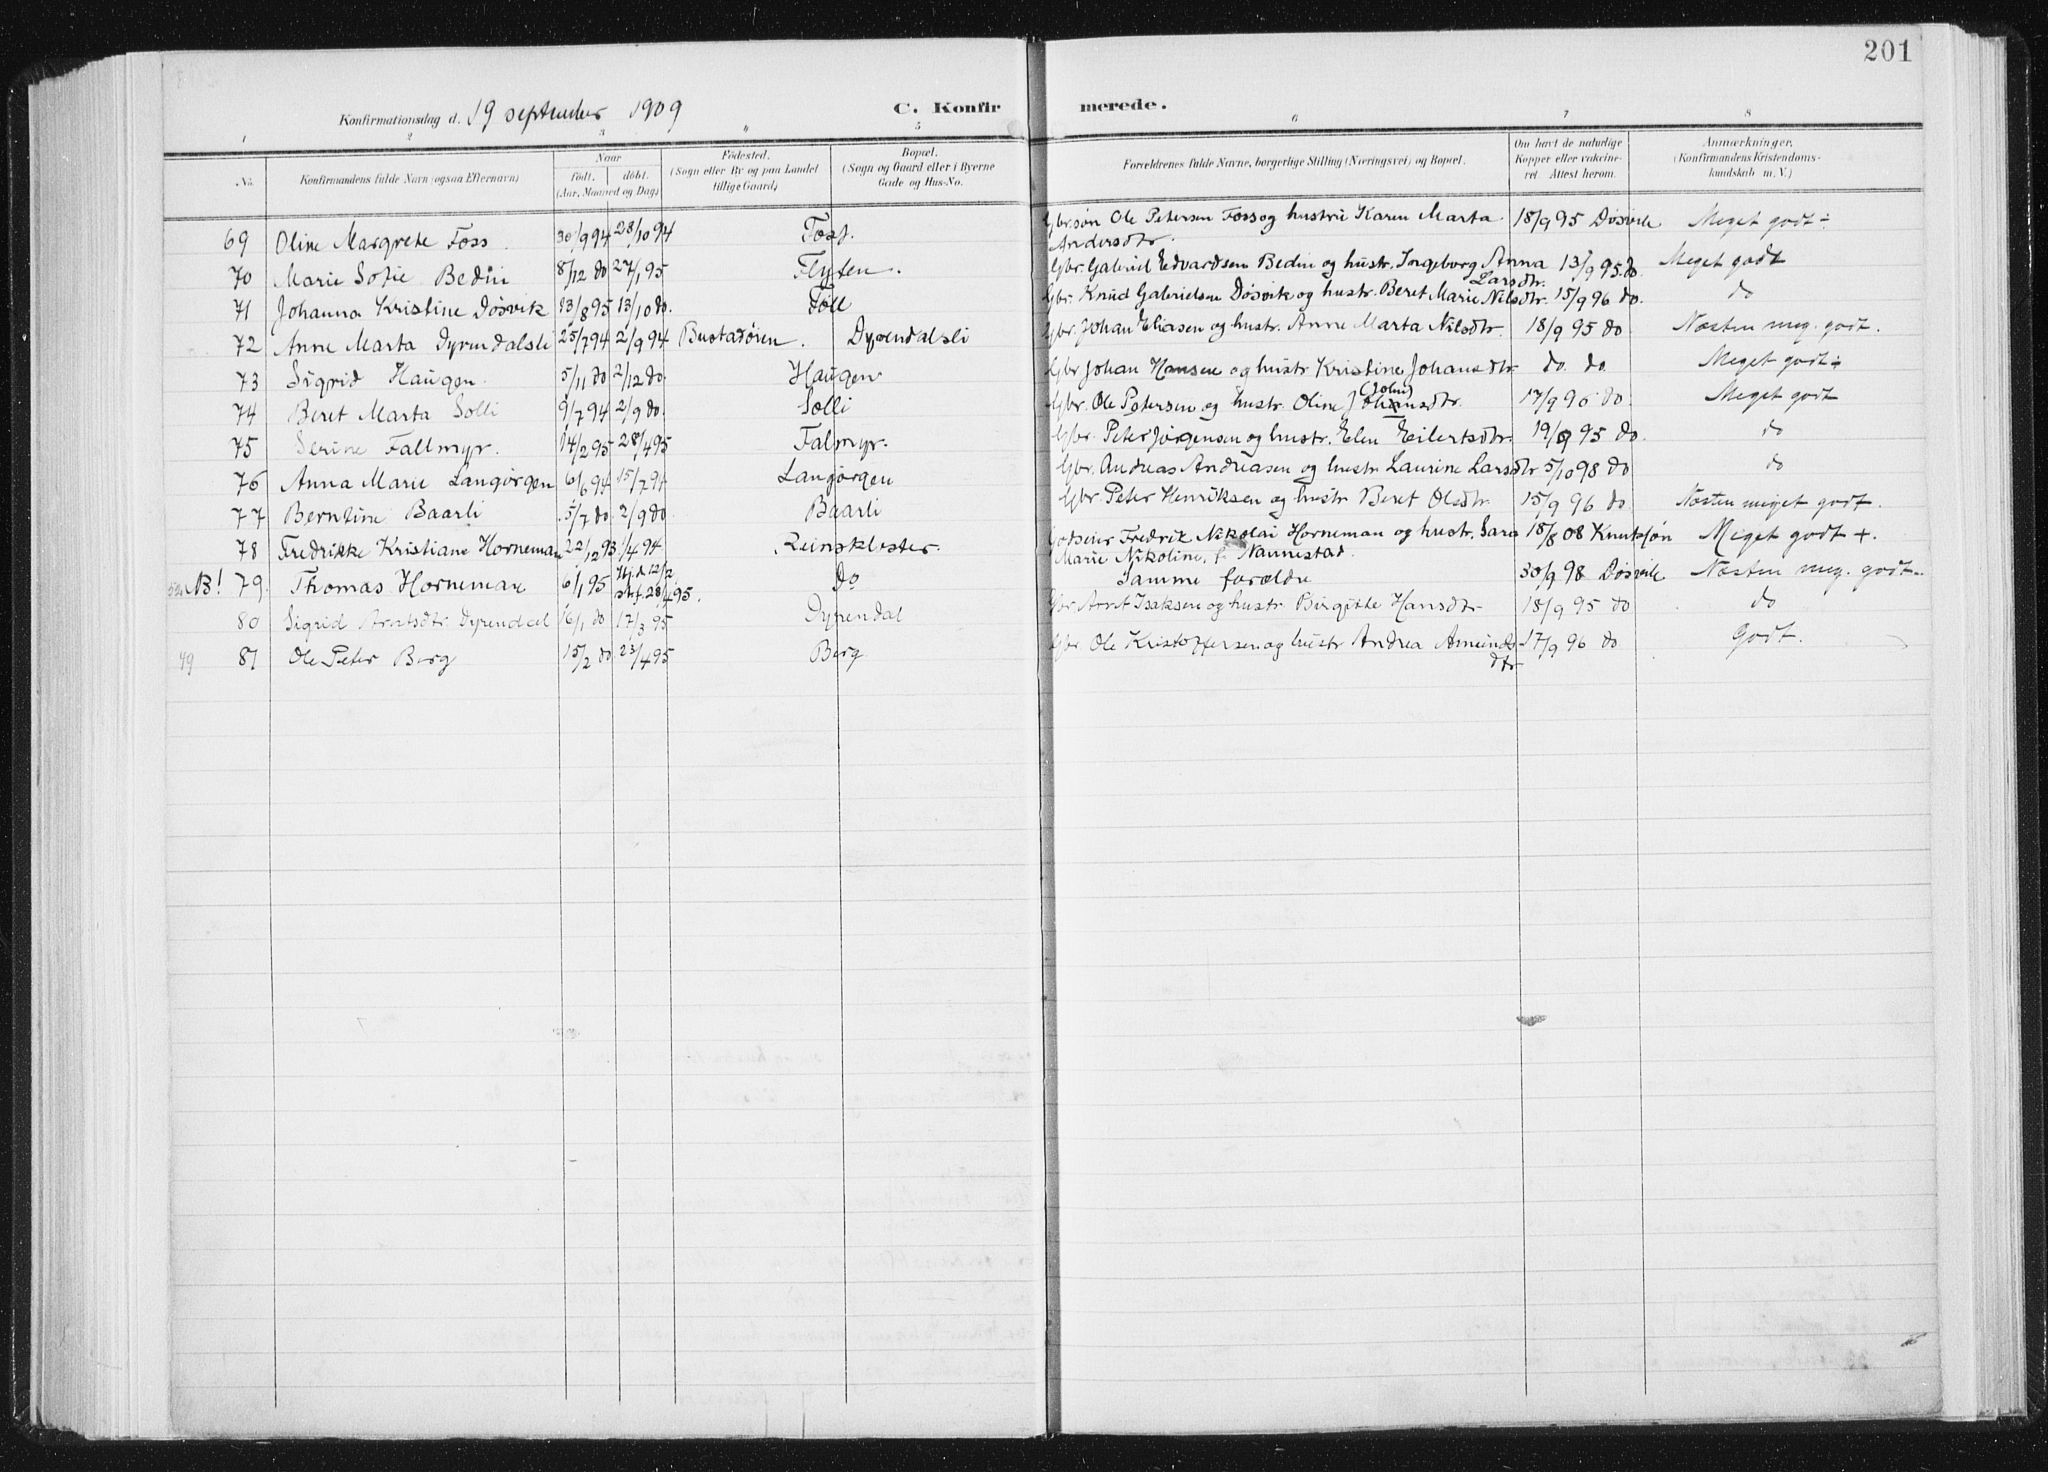 201
Konfirmationsdag d. 19 september 1909 C. Konfirmerede.
1 2 3 4 5 6 7 8
No. Konfirmandens fulde Navn (ogsaa Efternavn) Naar født. døbt. (Aar, Maaned og Dag) Fødested. (Sogn eller By og paa Landet tillige Gaard) Bopæl. (Sogn og Gaard eller i Byerne Gade og Hus-No. Forældrenes fulde Navne, borgerlige Stilling (Næringsvei) og Bopæl. Om havt de naturlige Kopper eller vakcineret. Attest herom. Anmærkninger, (Konfirmandens Kristendomskundskab m. V.)
69 Oline Margrete Foss 30/9 94 28/10 94 Foss. Gbr.søn Ole Petersen Foss og hustru Karen Marta 18/9 95 Døsvik Meget godt ÷
Andersdtr.
70 Marie Sofie Bedin 8/12 do 27/1 95 Flyten. Gbr. Gabriel Edvardsen Bedin og hustr. Ingeborg Anna 13/9 95 do. Meget godt
Larsdtr.
71 Johanna Kristine Døsvik 13/8 95 13/10 do. Føll Gbr. Knud Gabrielsen Døsvik og hustr. Beret Marie Nilsdtr. 15/9 96 do. do
72 Anne Marta Dyrendalsli 25/7 94 2/9 94 Bustadøren. Dyrendalsli Gbr. Johan Eliasen og hustr. Anne Marta Nilsdtr. 18/9 95 do Næsten meg. godt.
73 Sigrid Haugen. 5/11 do 2/12 do. Haugen Gbr Johan Hansen og hustr Kristine Johansdtr. do. do. Meget godt ÷
74 Beret Marta Solli 9/7 94 2/9 do. Solli Gbr. Ole Petersen og hustr. Oline J (John) sdtr. 17/9 96 do. Meget godt
75 Serine Fallmyr. 14/2 95 28/4 95 Falmyr. Gbr. Peter Jørgensen og hustr. Elen Eilertsdtr. 19/9 95 do. do
76 Anna Marie Langørgen 6/6 94 15/7 94 Langørgen Gbr. Andreas Andreasen og hustr Laurine Larsdtr 5/10 98 do do
77 Berntine Baarli 5/7 do. 2/9 do Baarli Gbr Peter Henriksen og hustr Beret Olsdtr. 15/9 96 do Næsten meget godt.
78 Fredrikke Kristiane Horneman 22/12 93 1/4 94 Reinskloster. Godseier Fredrik Nikolai Horneman og hustr. Sara 18/8 08 Knutsjøn Meget godt +.
Marie Nikoline, f. Nannestad.
B! 79. Thomas Horneman 6/1 95 Hj.d. 12/2 stf. 28/4 95. do Samme forældre 30/9 98 Døsvik Næsten meg. godt
80 Sigrid Arntsdtr Dyrendal 16/1 do 17/3 95 Dyrendal Gbr Arnt Isaksen og hustr Birgitte Hansdtr 18/9 95 do do
49 81 Ole Peter Berg 15/2 do 23/4 95 Berg Gbr Ole Kristoffersen og hustr Andrea Amunds 17/9 96 do Godt.
dtr